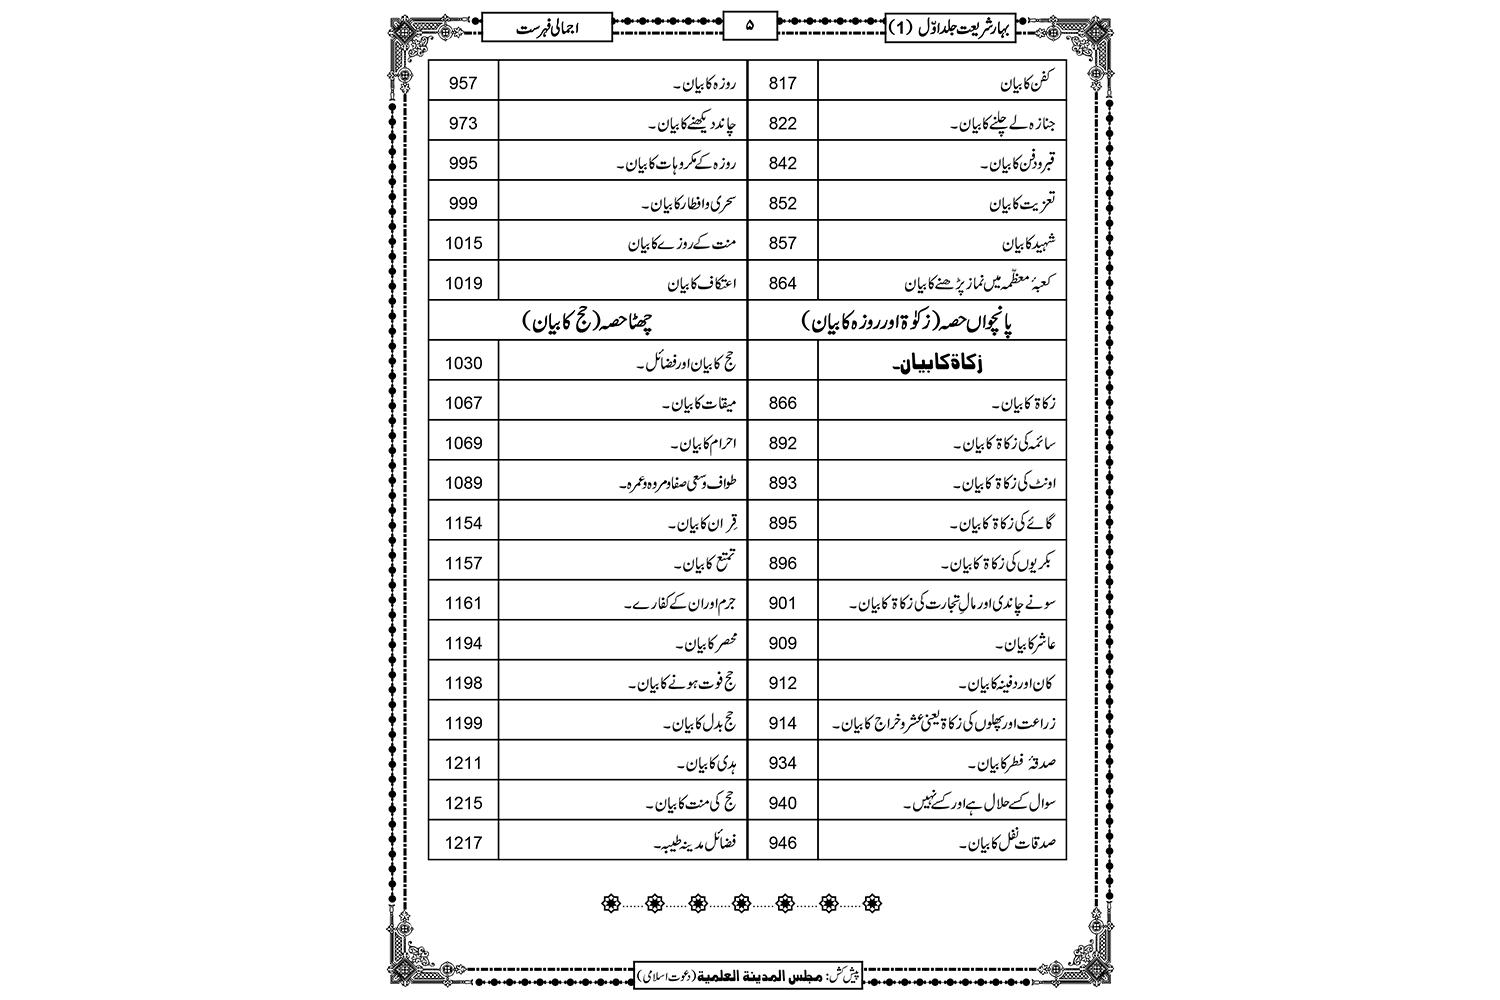 بہار شریعت جلد اوّل (1)
۵
اجمالی فہرست
کفن کا بیان 817
جنازہ لے چلنے کا بیان۔ 822
قبر و دفن کا بیان۔ 842
تعزیت کا بیان 852
شہید کا بیان 857
کعبۂ معظّمہ میں نماز پڑھنے کا بیان 864
پانچواں حصہ (زکوٰۃ اور روزہ کا بیان)
زکاۃ کا بیان۔
زکاۃ کا بیان۔ 866
سائمہ کی زکاۃ کا بیان۔ 892
اونٹ کی زکاۃ کا بیان۔ 893
گائے کی زکاۃ کا بیان۔ 895
بکریوں کی زکاۃ کا بیان۔ 896
سونے چاندی اور مالِ تجارت کی زکاۃ کا بیان۔ 901
عاشر کا بیان۔ 909
کان اور دفینہ کا بیان۔ 912
زراعت اور پھلوں کی زکاۃ یعنی عشر و خراج کا بیان۔ 914
صدقۂ فطر کا بیان۔ 934
سوال کسے حلال ہے اور کسے نہیں۔ 940
صدقات نفل کا بیان۔ 946
روزہ کا بیان۔ 957
چاند دیکھنے کا بیان۔ 973
روزہ کے مکروہات کا بیان۔ 995
سحری و افطار کا بیان۔ 999
منت کے روزے کا بیان 1015
اعتکاف کا بیان 1019
چھٹا حصہ (حج کا بیان)
حج کا بیان اور فضائل۔ 1030
میقات کا بیان۔ 1067
احرام کا بیان۔ 1069
طواف و سعی صفا و مروہ و عمرہ۔ 1089
قِران کا بیان۔ 1154
تمتع کا بیان۔ 1157
جرم اور ان کے کفارے۔ 1161
محصر کا بیان۔ 1194
حج فوت ہونے کا بیان۔ 1198
حج بدل کا بیان۔ 1199
ہدی کا بیان۔ 1211
حج کی منت کا بیان۔ 1215
فضائل مدینہ طیبہ۔ 1217
پیش کش: مجلس المدینۃ العلمیۃ (دعوت اسلامی)